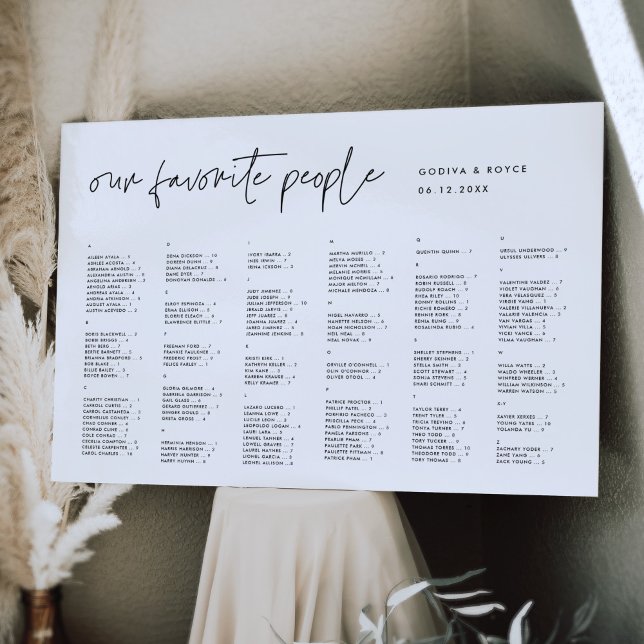 our favorite people
GODIVA & ROYCE
06.12.20XX
A
AILEEN AYALA ... 5
ASHLEE ACOSTA ... 4
ABRAHAM ARNOLD ... 7
ALEXANDRIA AUSTIN ... 8
ANGELINA ANDERSEN ... 3
ARNOLD ARIAS ... 3
ANDREAS AYALA ... 4
ANDREA ATKINSON ... 5
AUGUST AYALA ... 1
AUSTIN ACEVEDO ... 2
B
DORIS BLACKWELL ... 3
BOBBI BRIGGS ... 4
BETH BERG ... 7
BERTIE BARNETT ... 5
BRIANNA BRADFORD ... 7
BOB BLAKE ... 1
BILLIE BAILEY ... 2
BOYCE BOWEN ... 7
C
CHARITY CHRISTIAN ... 1
CARROLL CURTIS ... 2
CAROL CASTANEDA ... 3
CORNELIUS CONLEY ... 5
CHAD CONNER ... 4
CONRAD CLINE ... 6
COLE CONRAD ... 7
CECELIA COMPTON ... 8
CELESTE CARPENTER ... 9
CAROL CHARLES ... 10
D
DENA DICKSON ... 10
DOREEN DUNN ... 9
DIANA DELACRUZ ... 8
DANE DYER ... 7
DONOVAN DONALDS ... 6
E
ELROY ESPINOZA ... 4
ERMA ELLISON ... 5
ELDRIE ELEACH ... 6
ELAWRENCE ELITTLE ... 7
F
FREEMAN FORD ... 7
FRANKIE FAULKNER ... 8
FREDERIC FROST ... 5
FELICE FARLEY ... 1
G
GLORIA GILMORE ... 4
GABRIELA GARRISON ... 5
GAIL GLASS ... 6
GERARD GUTIERREZ ... 7
GINGER GOULD ... 8
GRETA GROSS ... 4
H
HERMINIA HENSON ... 1
HARRIS HARRISON ... 2
HARVEY HUNTER ... 4
HARRY HUYNH ... 8
I
IVORY IBARRA ... 2
INES IRWIN ... 7
IRINA ICKSON ... 3
J
JUDY JIMENEZ ... 8
JUDE JOSEPH ... 9
JULIAN JEFFERSON ... 10
JERALD JARVIS ... 8
JEFF JUAREZ ... 8
JOANNA JUAREZ ... 2
JARED JIMENEZ ... 3
JEANNINE JENNINGS ... 4
K
KRISTI KIRK ... 1
KATHLEEN KELLEY ... 2
KIM KANE ... 3
KARREN KRAUSE ... 4
KELLY KRAMER ... 7
L
LAZARO LUCERO ... 1
LEANNA LOWE ... 2
LUCILE LEON ... 3
LEOPOLDO LOGAN ... 4
LAURI LARA ... 5
LEMUEL TANNER ... 6
LOWELL GRAVES ... 6
LAUREL MATHIS ... 7
LIONEL GARCIA ... 3
LEONEL ALLISON ... 8
M
MARTHA MURILLO ... 2
MELVA MOORE ... 3
MERVIN MCNEIL ... 4
MELANIE MORRIS ... 5
MONIQUE MCMILLAN ... 6
MAJOR MELTON ... 7
MICHALE MENDOZA ... 8
N
NIGEL NAVARRO ... 5
NANETTE NELSON ... 6
NOAH NICHOLSON ... 7
NEIL NEAL ... 6
NEAL NOVAK ... 9
O
ORVILLE O'CONNELL ... 1
OLIN O'CONNOR ... 2
OLIVER OTOOL ... 4
P
PATRICE PROCTOR ... 1
PHILLIP PATEL ... 2
PORFIRIO PACHECO ... 3
PRISCILLA PECK ... 4
PABLO PENNINGTON ... 5
PAMELA PARSONS ... 6
PEARLIE PHAM ... 7
PAULETTE PITTMAN ... 8
PATRICE PHAM ... 1
Q
QUENTIN QUINN ... 7
R
ROSARIO RODRIGO ... 7
ROBIN RUSSELL ... 8
RUDOLPH ROACH ... 9
RHEA RILEY ... 10
RONNY ROLLINS ... 1
RICHIE ROMERO ... 2
RENNIE RORK ... 8
RENIA RUING ... 9
ROSALINDA RUBIO ... 4
S
SHELLEY STEPHENS ... 1
SHERRY SKINNER ... 2
STELLA SMITH ... 2
SCOT STEWART ... 4
SONJA STEVENS ... 5
SHARI SCHMITT ... 6
T
TAYLOR TERRY ... 4
TRENT TYLER ... 5
TRICIA TREVINO ... 6
TONYA TURNER ... 7
THEO TODD ... 8
TORY TUCKER ... 9
THOMAS TORRES ... 10
THEODORE TODD ... 9
TORY THOMAS ... 8
U
URSUL UNDERWOOD ... 9
ULYSSES ULLVERS ... 8
V
VALENTINE VALDEZ ... 7
VIOLET VAUGHAN ... 6
VERA VELASQUEZ ... 5
VIRGIE VANG ... 4
VALERIE VILLANUEVA ... 2
VALARIE VALENCIA ... 3
VAN VARGAS ... 2
VIVIAN VILLA ... 5
VICKI VANCE ... 6
VILMA VAUGHAN ... 7
W
WILLA WATTS ... 2
WALDO WHEELER ... 3
WINFRED WERNER ... 4
WILLIAN WILKINSON ... 2
WARREN WATSON ... 2
X-Y
XAVIER XERXES ... 7
YOUNG YATES ... 10
YOLANDA YU ... 9
Z
ZACHARY YODER ... 7
ZANE YANG ... 6
ZACK YOUNG ... 5